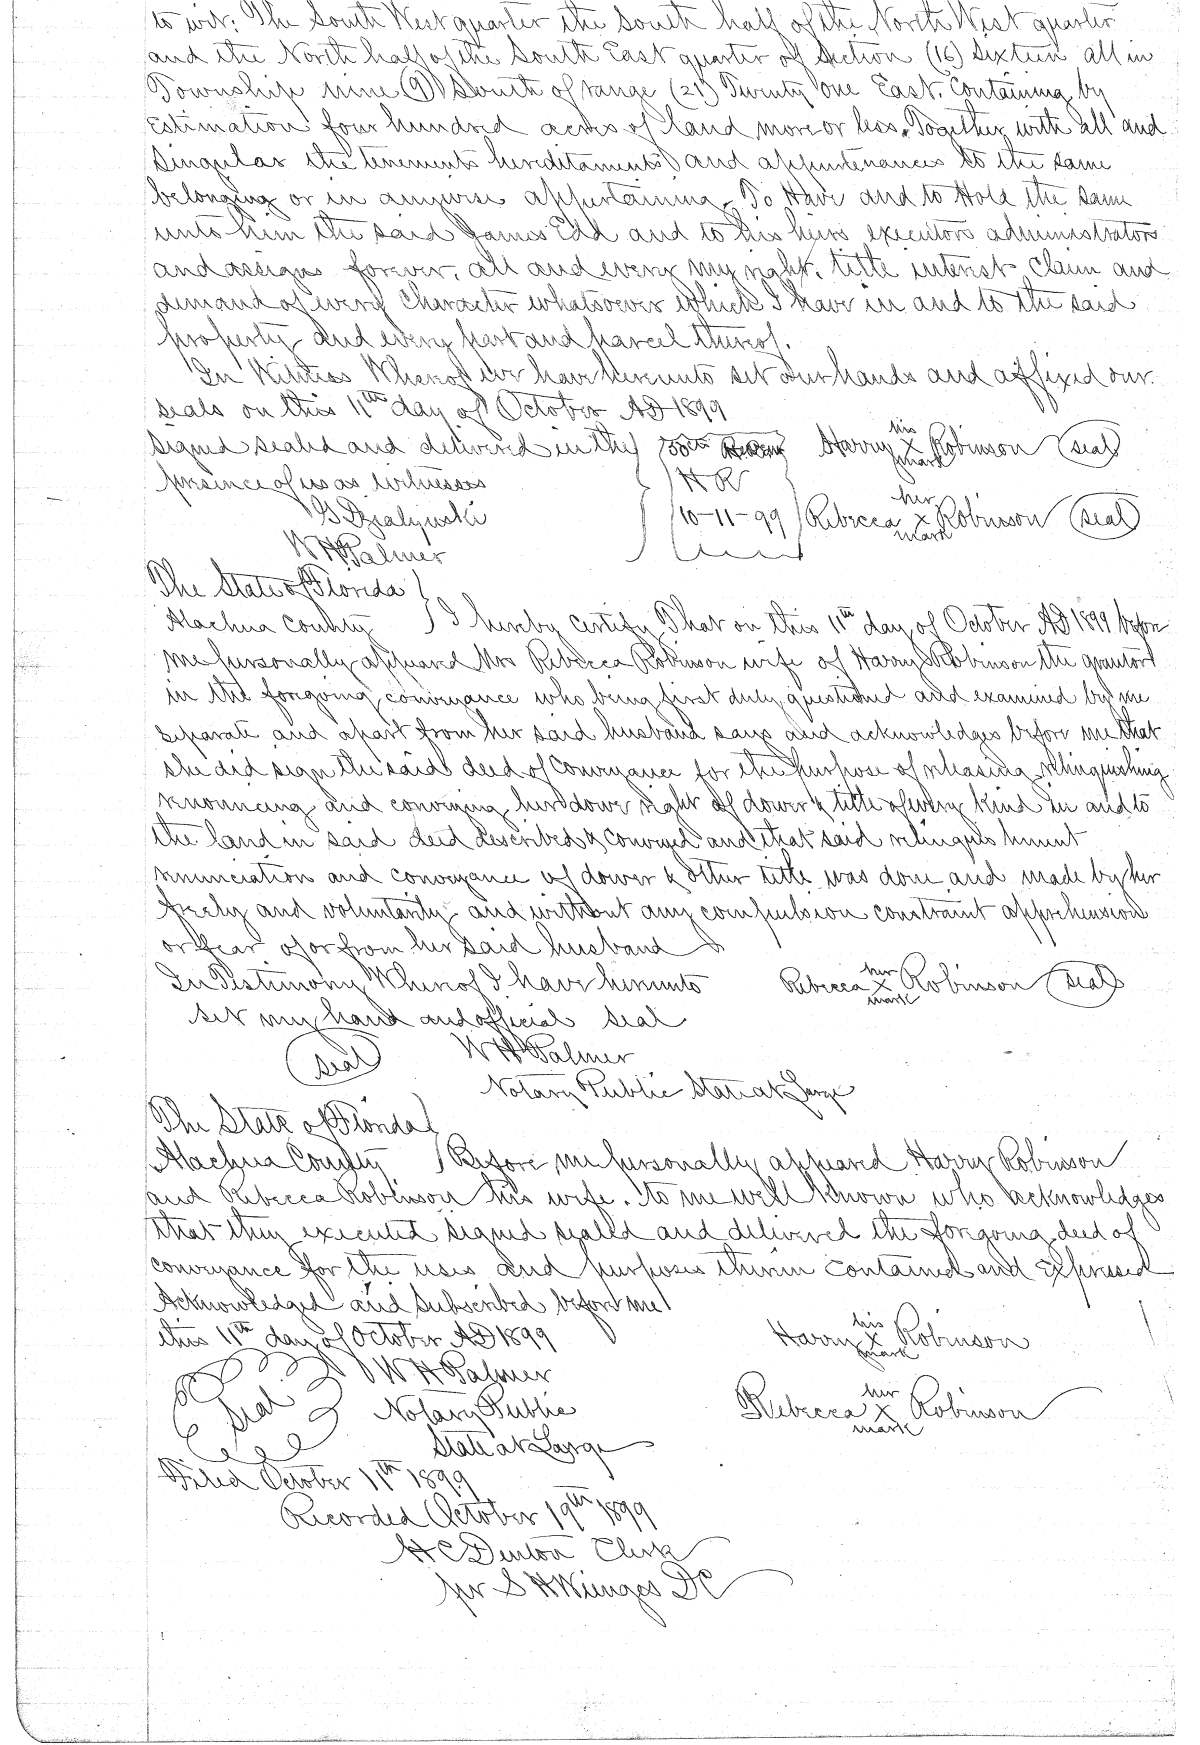 to wit: The South West quarter the South half of the North West quarter
and the North half of the South East quarter of Section (16) Sixteen all in
Township nine (9) South of range (21) Twenty One East. Containing by
Estimation four hundred acres of land more or less. Together with all and
Singular the tenements hereditaments and appurtenances to the same
belonging or in anywise appertaining. To Have and to Hold the same
unto him the said James Edd and to his heirs executors administrators
and assigns forever, all and every my right, title interest claim and
demand of every character whatsoever which I have in and to the said
property and every part and parcel thereof.
In Witness Whereof we have hereunto set our hands and affixed our
seals on this 11th day of October AD 1899
Signed sealed and delivered in the 50ct Harry his x mark Robinson (seal)
presence of us as witnesses H R
G Dzialynski 10-11-99 Rebecca her x mark Robinson (seal)
W H Palmer
The State of Florida
Alachua County I hereby certify That on this 11th day of October AD 1899 before
me personally appeared Mrs Rebecca Robinson wife of Harry Robinson the grantors
in the foregoing conveyance who being first duly questioned and examined by me
separate and apart from her said husband says and acknowledges before me that
she did sign the said deed of conveyance for the purpose of releasing relinquishing
renouncing and conveying her dower right of dower & title of every kind in and to
the land in said deed described & conveyed and that said relinquishment
renunciation and conveyance of dower & other title was done and made by her
freely and voluntarily and without any compulsion constraint apprehension
or fear of or from her said husband
In Testimony Whereof I have hereunto Rebecca her x mark Robinson (seal)
set my hand and official seal
(seal) W H Palmer
Notary Public State at Large
The State of Florida
Alachua County Before me personally appeared Harry Robinson
and Rebecca Robinson his wife. to me well known who acknowledges
that they executed signed sealed and delivered the foregoing deed of
conveyance for the uses and purposes therein contained and expressed
Acknowledged and Subscribed before me
this 11th day of October AD 1899 Harry his x mark Robinson
Seal W H Palmer
Notary Public Rebecca her x mark Robinson
State at Large
Filed October 11th 1899
Recorded October 19th 1899
H C Denton Clerk
per S H Wienges DC